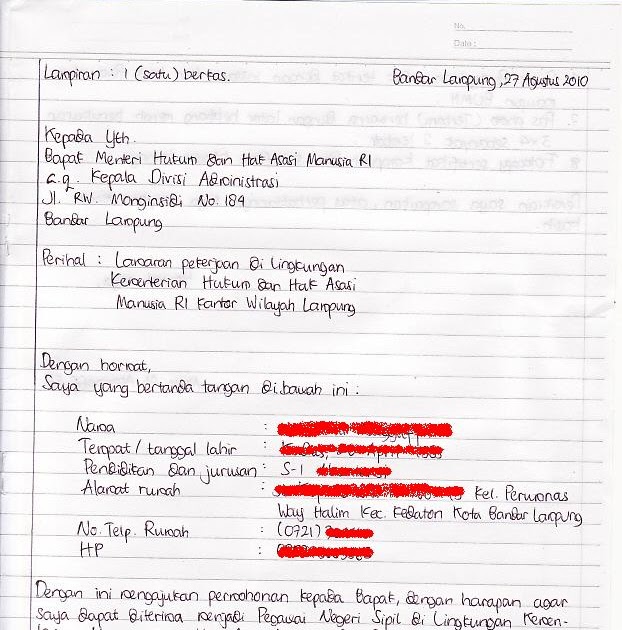 No.
Date :
Lampiran : 1 (satu) berkas.
Bandar Lampung, 27 Agustus 2010
Kepada Yth.
Bapak Menteri Hukum dan Hak Asasi Manusia RI
c.q. Kepala Divisi Administrasi
Jl. RW. Monginsidi No. 184
Bandar Lampung
Perihal : Lamaran pekerjaan di lingkungan
Kementerian Hukum dan Hak Asasi
Manusia RI Kantor Wilayah Lampung
Dengan hormat,
Saya yang bertanda tangan di bawah ini :
Nama :
Tempat / tanggal lahir :
Pendidikan dan jurusan : S-1
Alamat rumah : Kel. Perumnas
Way Halim Kec. Kedaton Kota Bandar Lampung
No. Telp. Rumah : (0721)
HP :
Dengan ini mengajukan permohonan kepada Bapak, dengan harapan agar
saya dapat diterima menjadi Pegawai Negeri Sipil di Lingkungan Kemen-